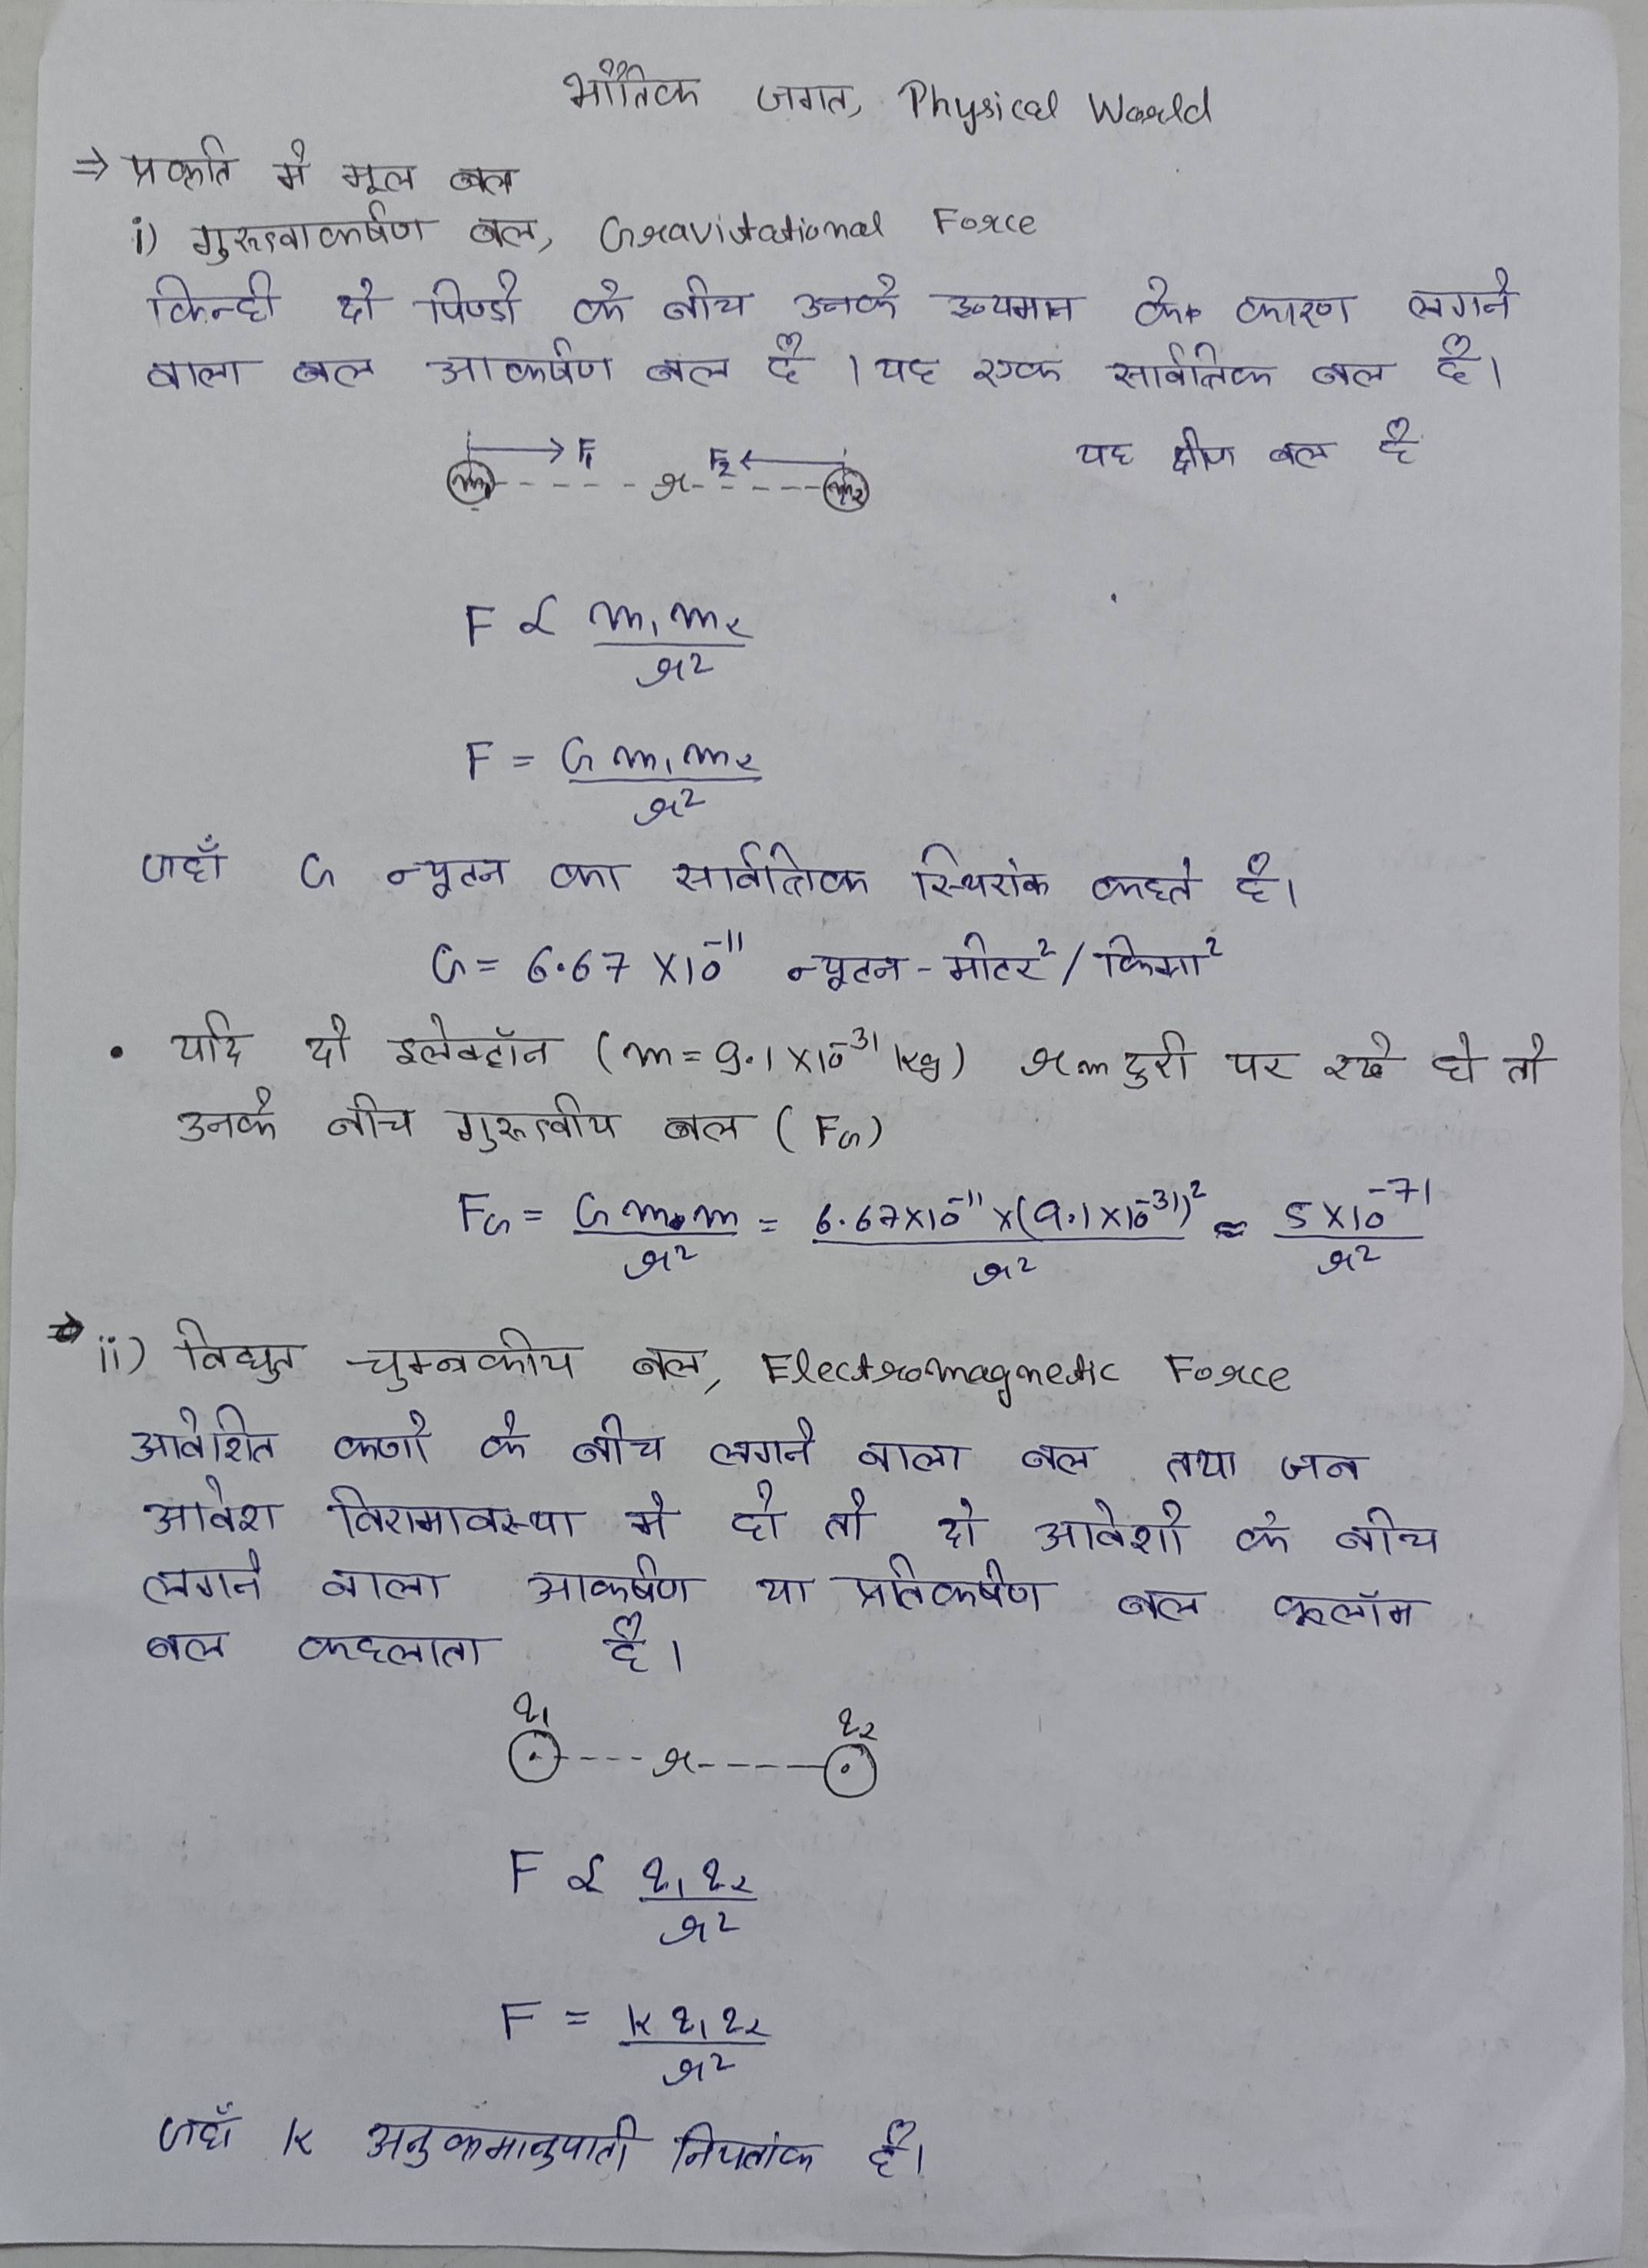 भौतिक जगत, Physical World
⇒ प्रकृति मे मूल बल
i) गुरूत्वाकर्षण बल, Gravitational Force
किन्ही दो पिण्डो के बीच उनके द्रव्यमान के कारण लगने
वाला बल आकर्षण बल है । यह एक सार्वत्रिक बल है।
F₁ F₂ यह क्षीण बल है
m₁ r m₂
F ∝ m₁ m₂ / r²
F = G m₁ m₂ / r²
जहाँ G न्यूतन का सार्वत्रिक स्थिरांक कहते है।
G = 6.67 × 10⁻¹¹ न्यूटन - मीटर² / किग्रा²
• यदि दो इलेक्ट्रॉन (m = 9.1 × 10⁻³¹ kg) r m दुरी पर रखे हो तो
उनके बीच गुरूत्वीय बल (FG)
FG = G m.m / r² = 6.67×10⁻¹¹ × (9.1×10⁻³¹)² / r² ≈ 5×10⁻⁷¹ / r²
⇒ ii) विद्युत चुम्बकीय बल, Electromagnetic Force
आवेशित कणो के बीच लगने वाला बल तथा जब
आवेश विरामावस्था मे हो तो दो आवेशो के बीच
लगने वाला आकर्षण या प्रतिकर्षण बल कूलॉम
बल कहलाता है।
q₁ q₂
r
F ∝ q₁ q₂ / r²
F = k q₁ q₂ / r²
जहाँ k अनुक्रमानुपाती नियतांक है।